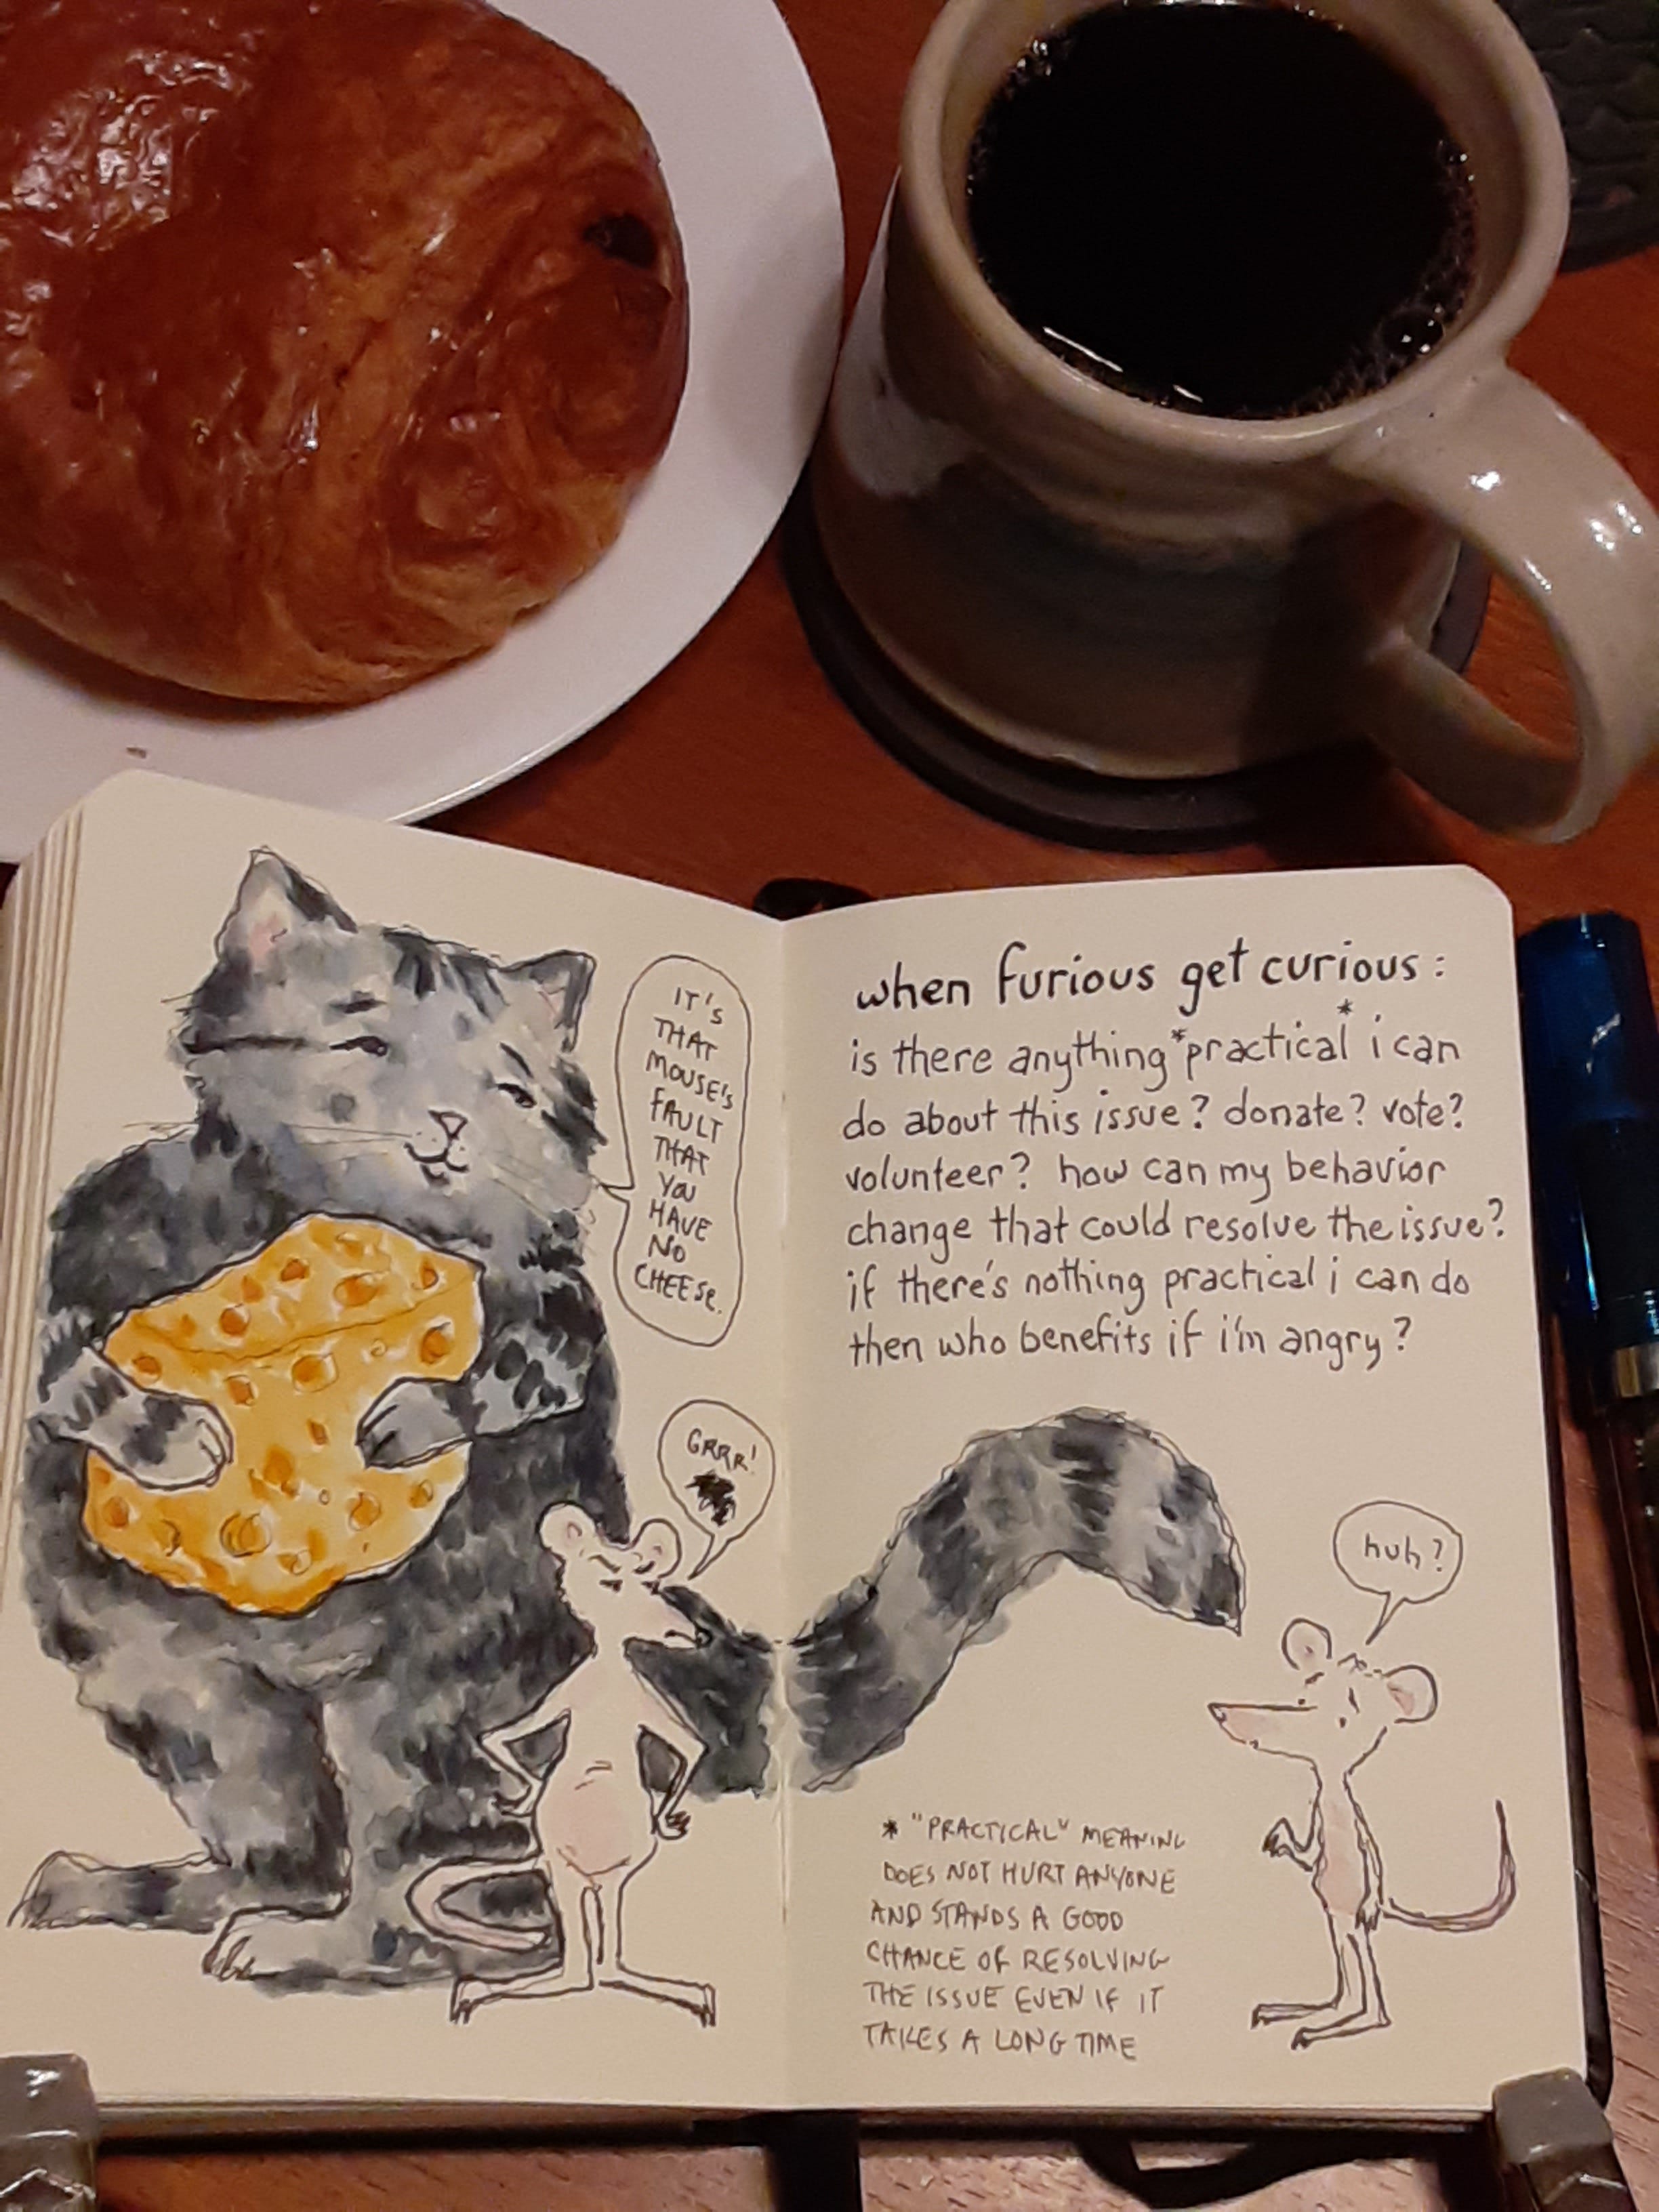 IT'S
THAT
MOUSE'S
FAULT
THAT
YOU
HAVE
NO
CHEESE.
GRRR!
when furious get curious:
is there anything *practical* i can
do about this issue? donate? vote?
volunteer? how can my behavior
change that could resolve the issue?
if there's nothing practical i can do
then who benefits if i'm angry?
huh?
* "PRACTICAL" MEANING
DOES NOT HURT ANYONE
AND STANDS A GOOD
CHANCE OF RESOLVING
THE ISSUE EVEN IF IT
TAKES A LONG TIME